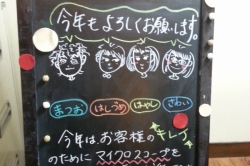 今年もよろしくお願いします。
まつお はしづめ はやし さわい
今年は、お客様の キレイ
のために マイクロスコープを